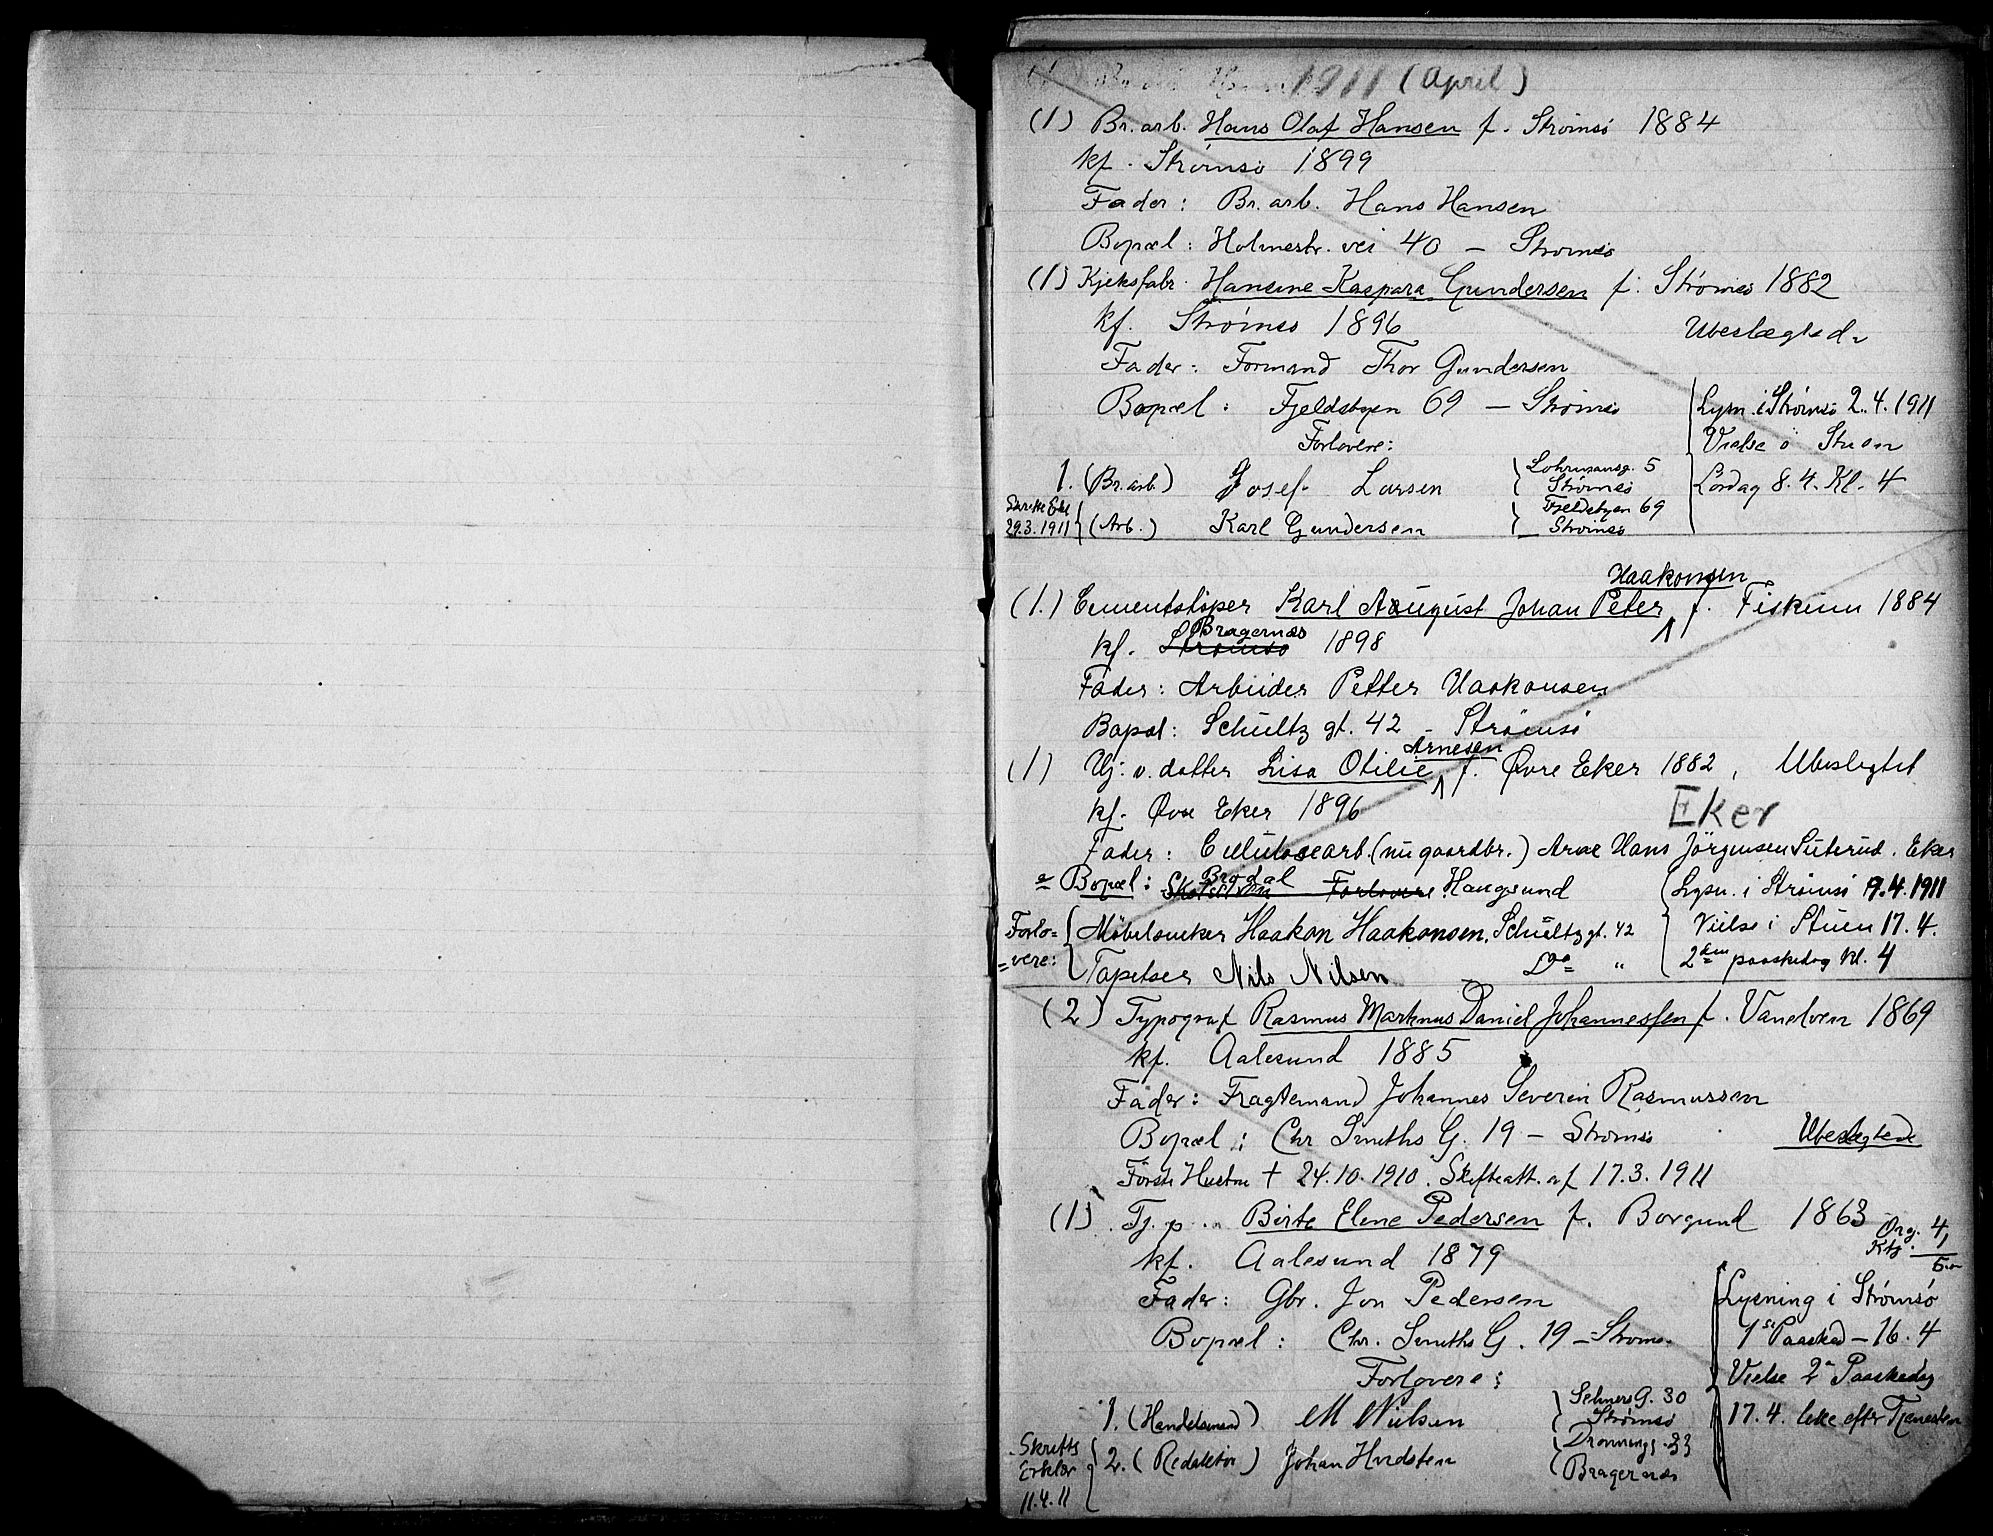 1911 (April)
(1) Br. arb. Hans Olaf Hansen f. Strømsø 1884
kf. Strømsø 1899
Fader: Br. arb. Hans Hansen
Bopæl: Holmestr. vei 40 – Strømsø
(1) Kjeksfabr. Hansine Kaspara Gundersen f. Strømsø 1882
kf. Strømsø 1896 Ubeslægtede
Fader: Formand Thor Gundersen
Bopæl: Fjeldsbyen 69 – Strømsø
Lysn. i Strømsø 2.4.1911
Forlovere: Vielse i Stuen
1. (Br. arb.) Josef Larsen Lohrmansg. 5 Strømsø Lørdag 8.4. Kl. 4
29.3.1911 (Arb.) Karl Gundersen Fjeldsbyen 69 Strømsø
Haakonsen
(1.) Cementstøper Karl August Johan Peter f. Fiskum 1884
kf. Strømsø Bragernæs 1898
Fader: Arbeider Petter Haakonsen
Bopæl: Schultz gt. 42 – Strømsø
Arnesen
(1) Hj. v. datter Lisa Otilie f. Øvre Eker 1882, Ubeslegtet
kf. Øvre Eker 1896 Eker
Fader: Cellulosearb. (nu gaardbr.) Arne Hans Jörgensen . Eker
Bopæl: Forlovere Haugsund
Lysn. i Strømsø 9.4.1911
Forlo= Møbelsneker Haakon Haakonsen, Schultz gt. 42 Vielse i Stuen 17.4.
=vere: Tapetser Nils Nilsen Do " 2den paaskedag kl. 4
(2) Typograf Rasmus Marknus Daniel Johannessen f. Vanelven 1869
kf. Aalesund 1885
Fader: Fragtemand Johannes Severin Rasmussen
Bopæl: Chr Smiths G. 19 – Strømsø Ubeslegtede
Første Hustru † 24.10.1910. Skifteatt. af 17.3.1911
(1) Tj. p. Birte Eline Pedersen f. Borgund 1863
Org. 4,
Ktj.
kf. Aalesund 1879
Fader: Gbr. Jon Pedersen
Lysning i Strømsø
Bopæl: Chr. Smiths G. 19 – Strøms. 1st Paasked – 16.4
Forlovere: Vielse 2n Paaskedag
1. (Handelsmand) M Nielsen Selmers G. 30 Strømsø 17.4. like efter Tjenesten
Skriftl Erklær 11.4.11 2. (Redaktør) Johan Hvidsten Dronningg. 33 Bragernæs